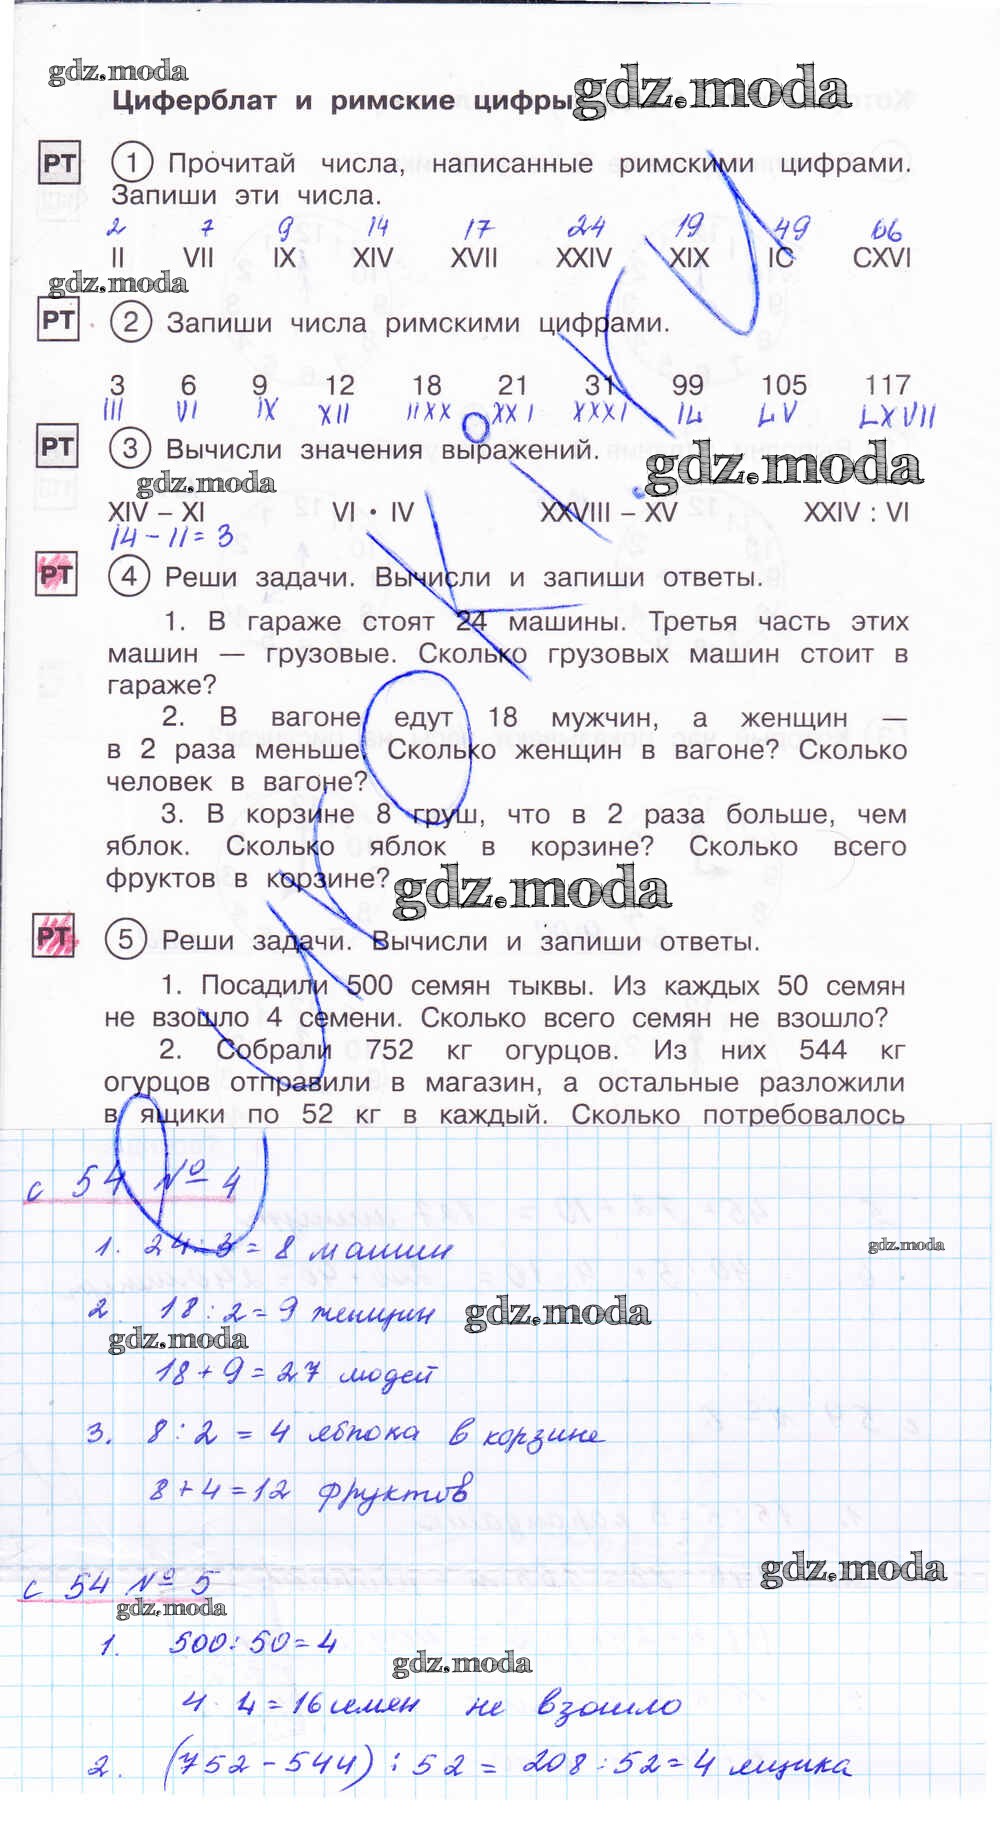 gdz.moda
Циферблат и римские цифры gdz.moda
РТ 1 Прочитай числа, написанные римскими цифрами.
Запиши эти числа.
2 7 9 14 17 24 19 49 66
II VII IX XIV XVII XXIV XIX IC CXVI
gdz.moda
РТ 2 Запиши числа римскими цифрами.
3 6 9 12 18 21 31 99 105 117
III VI IX XII IIXX XXI XXXI IL LV LXVII
РТ 3 Вычисли значения выражений.
gdz.moda gdz.moda
XIV – XI VI • IV XXVIII – XV XXIV : VI
14 - 11 = 3
РТ 4 Реши задачи. Вычисли и запиши ответы.
1. В гараже стоят 24 машины. Третья часть этих
машин — грузовые. Сколько грузовых машин стоит в
гараже?
2. В вагоне едут 18 мужчин, а женщин —
в 2 раза меньше. Сколько женщин в вагоне? Сколько
человек в вагоне?
3. В корзине 8 груш, что в 2 раза больше, чем
яблок. Сколько яблок в корзине? Сколько всего
фруктов в корзине?
gdz.moda
РТ 5 Реши задачи. Вычисли и запиши ответы.
1. Посадили 500 семян тыквы. Из каждых 50 семян
не взошло 4 семени. Сколько всего семян не взошло?
2. Собрали 752 кг огурцов. Из них 544 кг
огурцов отправили в магазин, а остальные разложили
в ящики по 52 кг в каждый. Сколько потребовалось
с 54 № 4
1. 24 : 3 = 8 машин
gdz.moda
2 18 : 2 = 9 женщин
gdz.moda
gdz.moda
18 + 9 = 27 людей
3. 8 : 2 = 4 яблока в корзине
8 + 4 = 12 фруктов
gdz.moda
с 54 № 5
gdz.moda
1. 500 : 50 = 4
gdz.moda
4 · 4 = 16 семян не взошло
2. (752 - 544) : 52 = 208 : 52 = 4 ящика